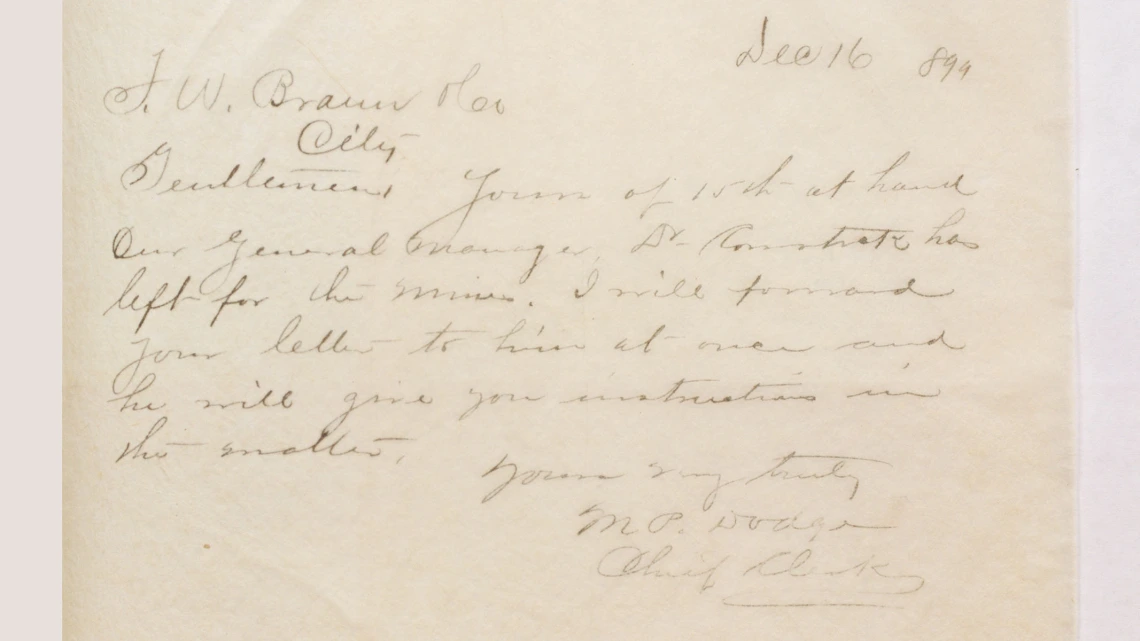 Dec 16 899
F. W. Braun & Co
City
Gentlemen, Yours of 15th at hand
Our General Manager, Dr. Comstock has
left for the mines. I will forward
your letter to him at once and
he will give you instructions in
the matter.
Yours very truly
M. P. Dodge
Chief Clerk